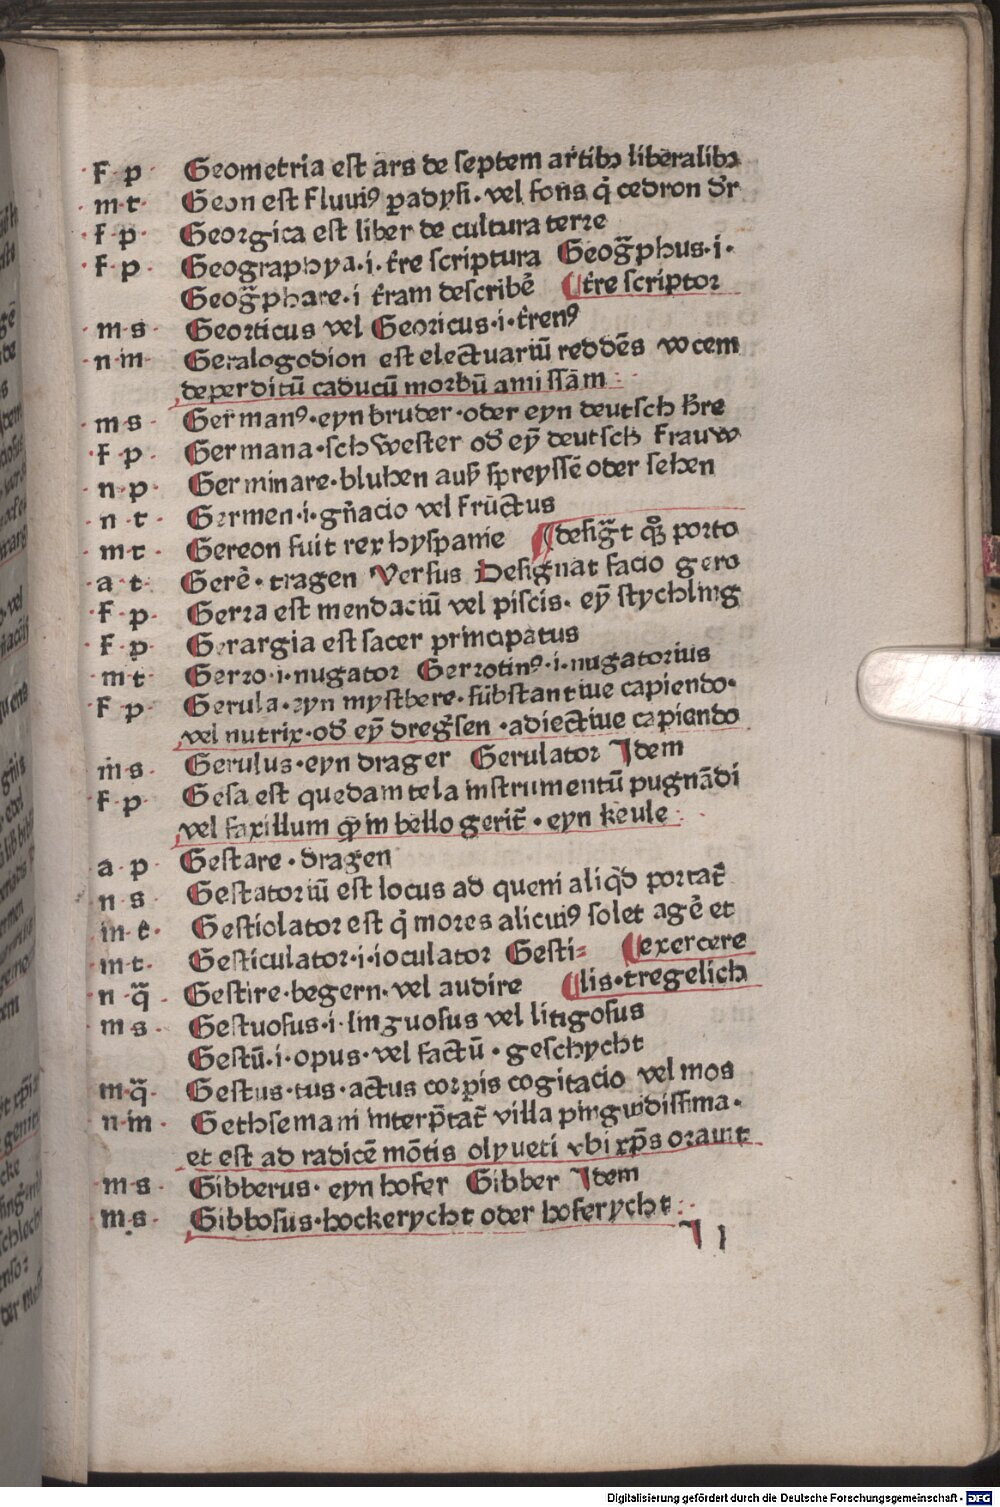 F p Geometria est ars de septem artibꝫ liberalibꝫ
m t Geon est Fluuiꝰ padysi. vel fons q̇ cedron dr̄
f p Georgica est liber de cultura terre
f p Geographya.i. t̄re scriptura Geog̃phus.i.
Geog̃phare.i t̄ram describē ¶t̄re scriptor
m s Georticus vel Georicus.i.t̄renꝰ
n m Geralogodion est electuariū reddēs vocem
deperditū caducū morbū amissām
m s Germanꝰ.eyn bruder.oder eyn deutsch h̄re
f p Germana.schwester od̄ eȳ deutsch Frauw
n p Germinare.bluhen auß spreyssē oder sehen
n t Germen.i.gn̄acio vel Frūctus
m t Gereon fuit rex hyspanie ¶desig̃t qꝫ porto
a t Gerē.tragen Versus Designat facio gero
f p Gerra est mendaciū vel piscis. eȳ stychling
f p Gerargia est sacer principatus
m t Gerro.i.nugator Gerrotinꝰ.i.nugatorius
F p Gerula.eyn mystbere.substantiue capiendo.
vel nutrix.od̄ eȳ dreg̃sen.adiectiue capiendo
m s Gerulus.eyn drager Gerulator Idem
f p Gesa est quedam tela instrumentū pugnādi
vel faxillum qđ in bello gerit̄.eyn keule
a p Gestare.dragen
n s Gestatoriū est locus ad quem aliq̇d portat̄
m t Gestiolator est q̇ mores alicuiꝰ solet agē et
m t Gesticulator.i.ioculator Gesti= ¶exercere
n q̄ Gestire.begern.vel audire ¶lis.tregelich
m s Gestuosus.i.linguosus vel litigosus
Gestū.i.opus.vel factū.geschycht
m q̄ Gestus.tus.actus corpis cogitacio vel mos
n m Gethsemani interp̄tat̄ villa pinguidissima.
et est ad radicē mōtis olyueti vbi xp̄s orauit
m s Gibberus. eyn hofer Gibber Idem
m s Gibbosus.hockerycht oder hoferycht
Digitalisierung gefördert durch die Deutsche Forschungsgemeinschaft - DFG